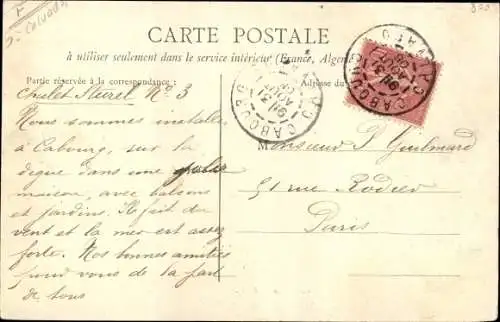 CARTE POSTALE
à utiliser seulement dans le service intérieur (France, Algérie
Partie réservée à la correspondance
Adresse du
Chalet N° 3
Nous sommes installés
à Cabourg, sur la
digue dans une jolie
maison, avec balcons
et jardins. Il fait du
vent et la mer est assez
forte. Nos bonnes amitiés
pour vous de la part
de tous
Monsieur P. Guilmard
51 rue Rodier
Paris
CABOURG
CALVADOS
CABOURG
Calvados